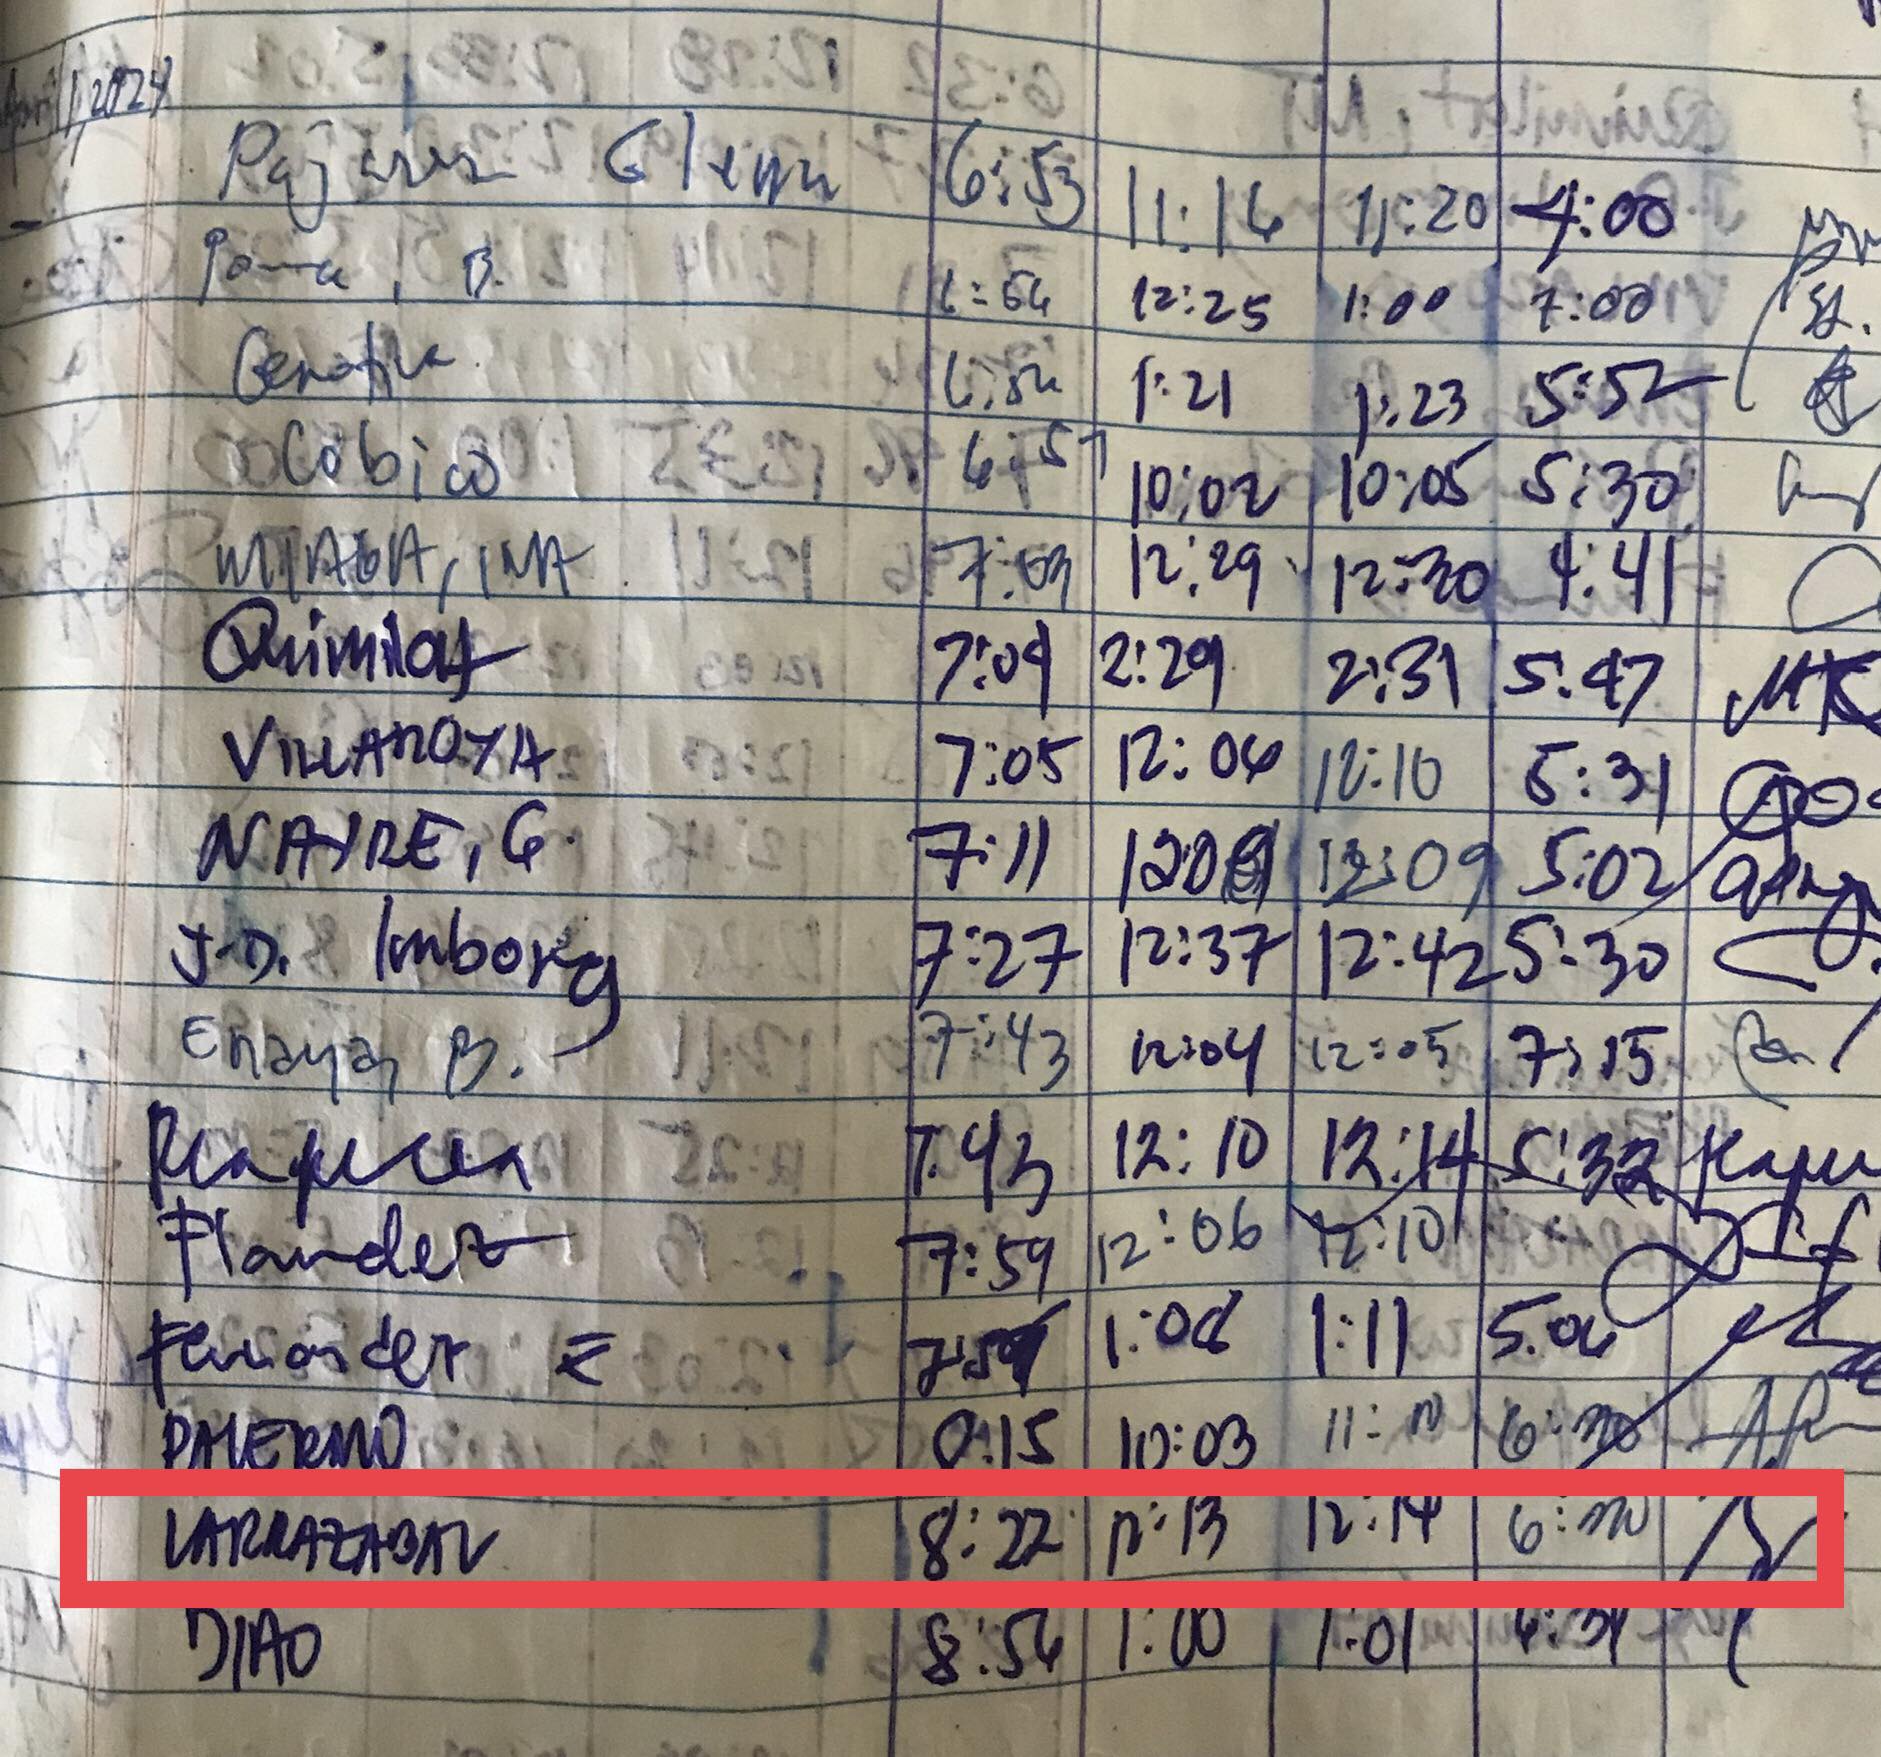 April 1, 2024
Glenn 6:53 11:16 11:20 4:00
B. 6:56 12:25 1:00 7:00
6:56 1:21 1:23 5:52
Cobico 6:57 10:02 10:05 5:30
MIAGA, INA 7:03 12:29 12:30 4:41
Quimilat 7:04 2:29 2:31 5:47
VILLANOVA 7:05 12:06 12:10 5:31
NAYRE, G. 7:11 12:09 5:02
J.D. Imborg 7:27 12:37 12:42 5:30
Enaya, B. 7:43 12:04 12:05 7:15
7:43 12:10 12:14 5:32
Flandez 7:59 12:06 12:10
Fernandez E 7:59 1:06 1:11 5:06
PALERMO 8:15 10:03 6:30
LARRAZABAL 8:22 12:13 12:14 6:30
DIAO 8:56 1:00 1:01 6:31